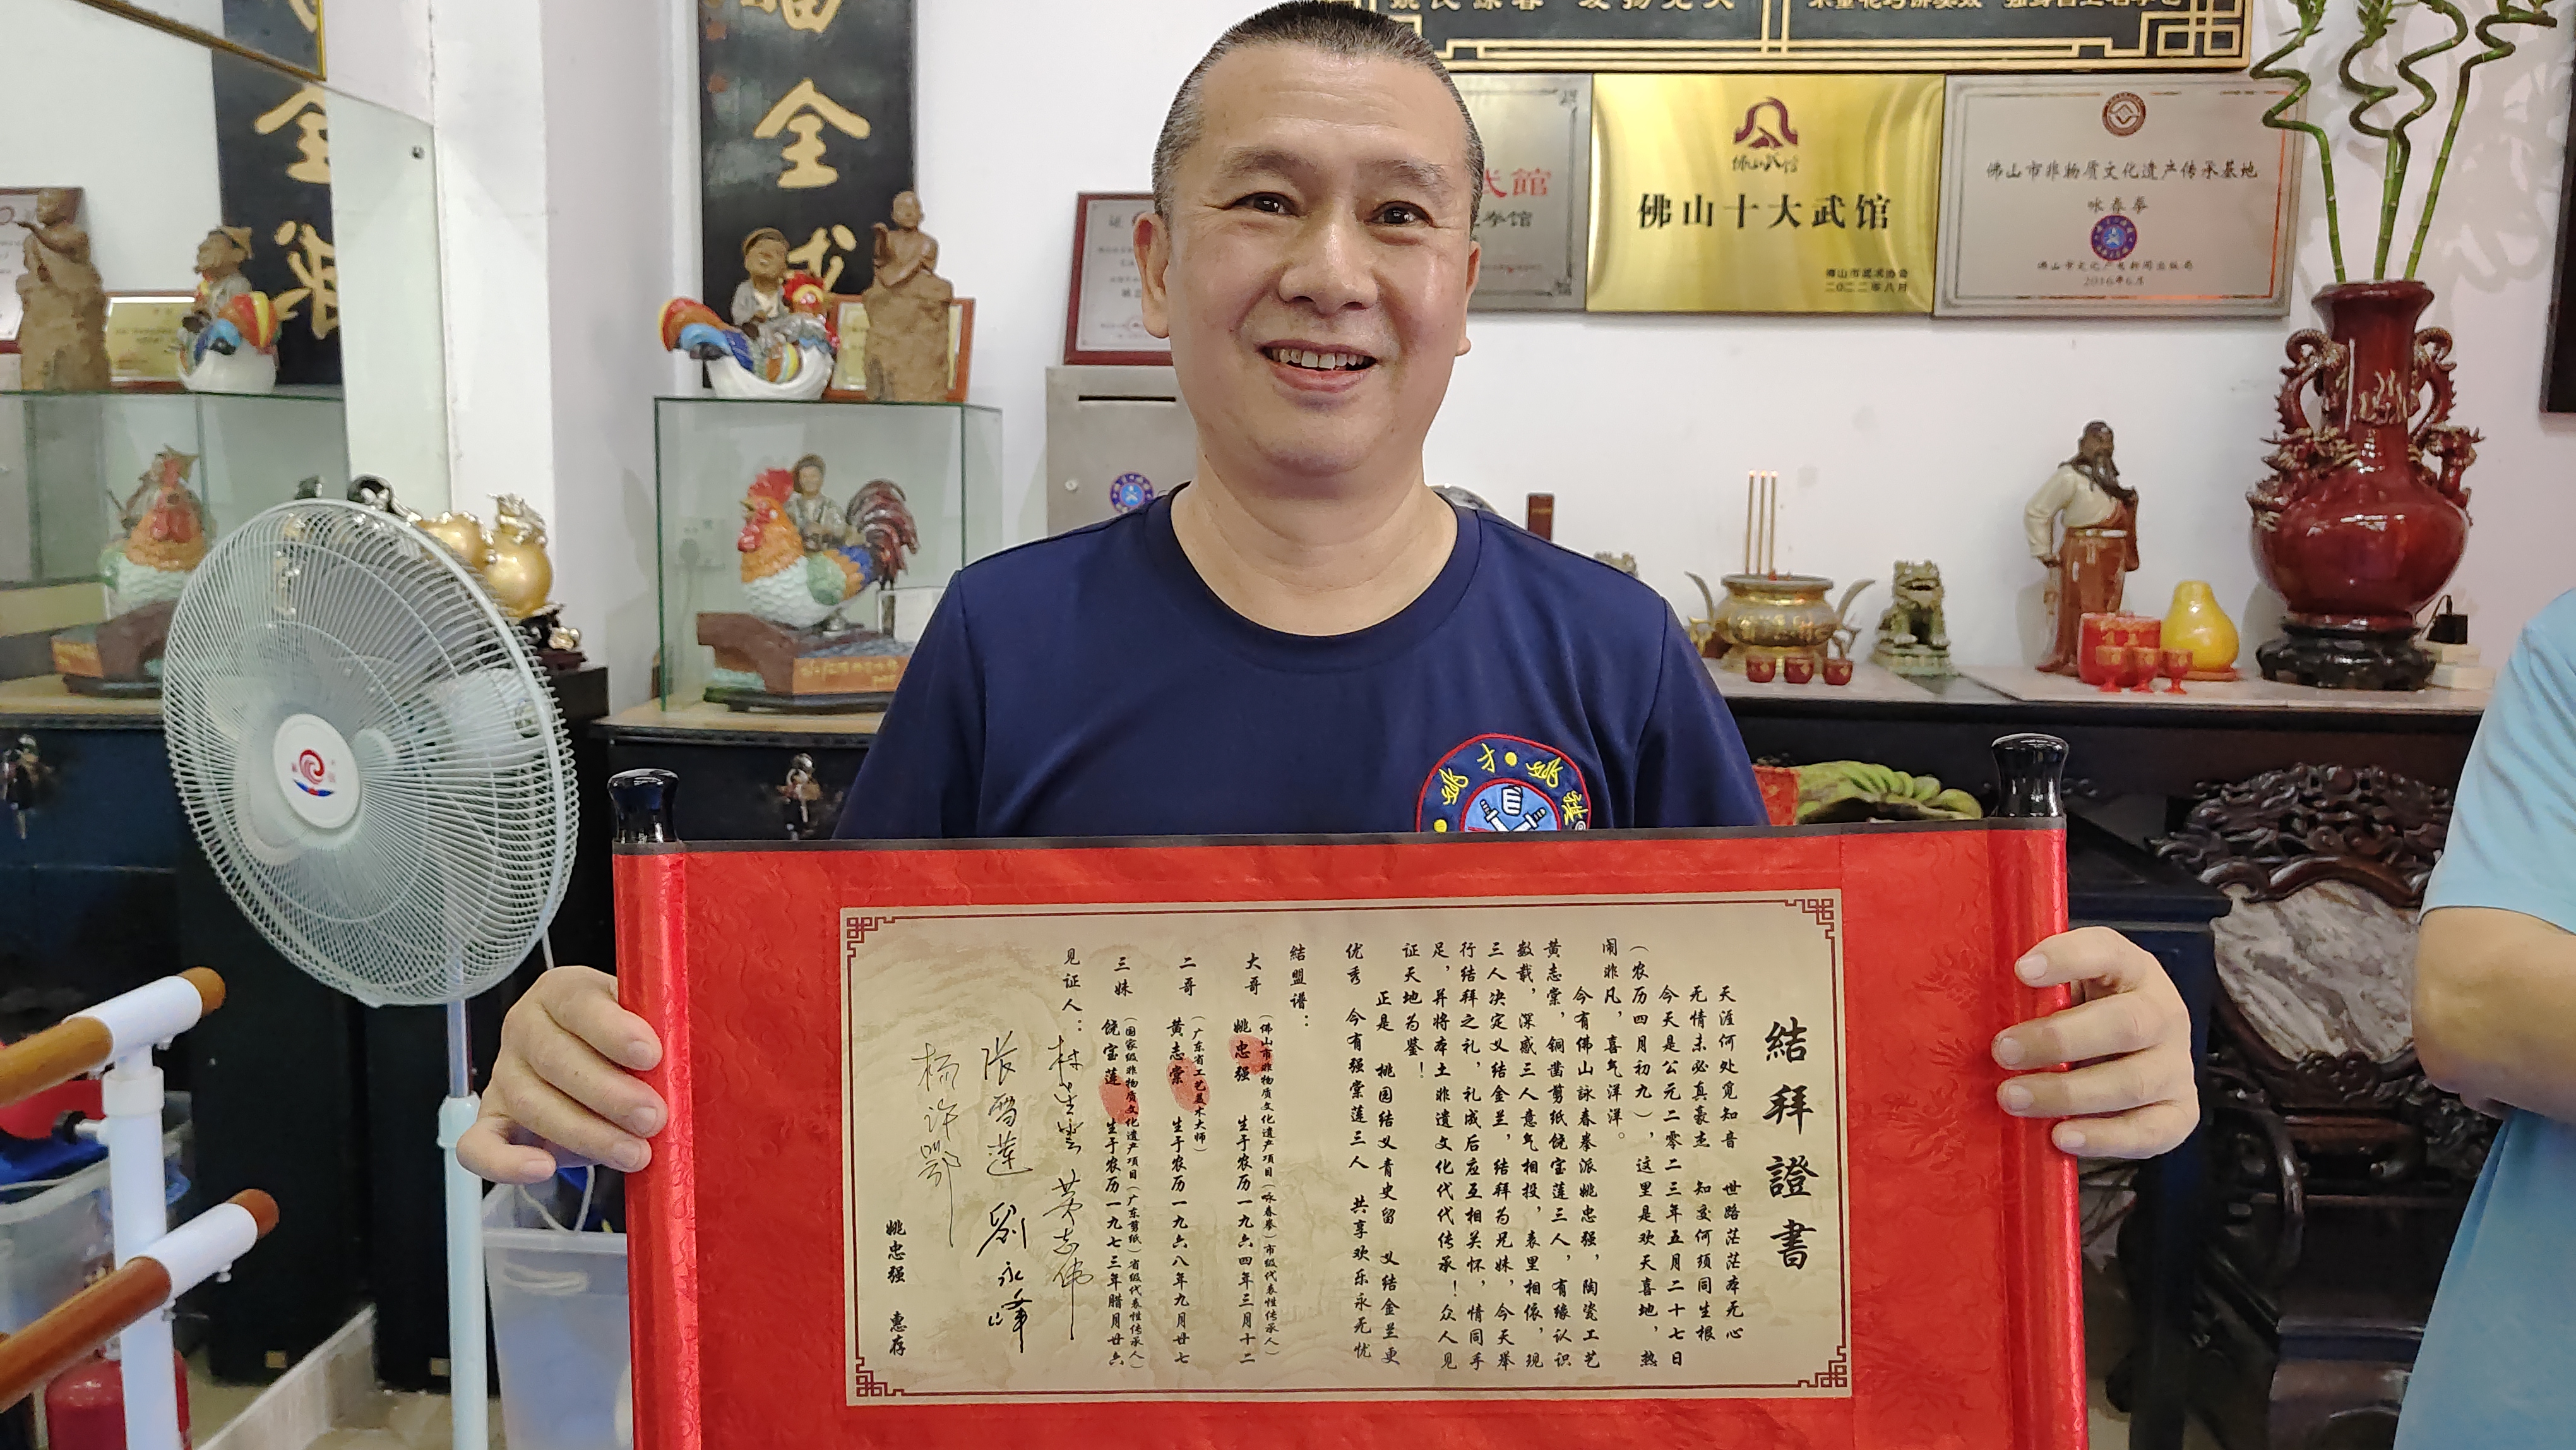 福全
全
佛山武馆
佛山十大武馆
佛山市武术协会
二〇二二年八月
武館
拳馆
佛山市非物质文化遗产传承基地
咏春拳
佛山市文化广电新闻出版局
2016年6月
证
姚才姚
結拜證書
天涯何处觅知音 世路茫茫本无心
无情未必真豪杰 知交何须同生根
今天是公元二零二三年五月二十七日
（农历四月初九），这里是欢天喜地，热
闹非凡，喜气洋洋。
今有佛山詠春拳派姚忠强，陶瓷工艺
黄志棠，铜凿剪纸饶宝莲三人，有缘认识
数载，深感三人意气相投，表里相依，现
三人决定义结金兰，结拜为兄妹，今天举
行结拜之礼，礼成后应互相关怀，情同手
足，并将本土非遗文化代代传承！众人见
证天地为鉴！
正是 桃园结义青史留 义结金兰更
优秀 今有强棠莲三人 共享欢乐永无忧
結盟谱：
（佛山市非物质文化遗产项目（咏春拳）市级代表性传承人）
大哥 姚忠强 生于农历一九六四年三月十二
（广东省工艺美术大师）
二哥 黄志棠 生于农历一九六八年九月廿七
（国家级非物质文化遗产项目（广东剪纸）省级代表性传承人）
三妹 饶宝莲 生于农历一九七三年腊月廿六
见证人：
黄志伟
劉永峰
杨许鄂
姚忠强 惠存